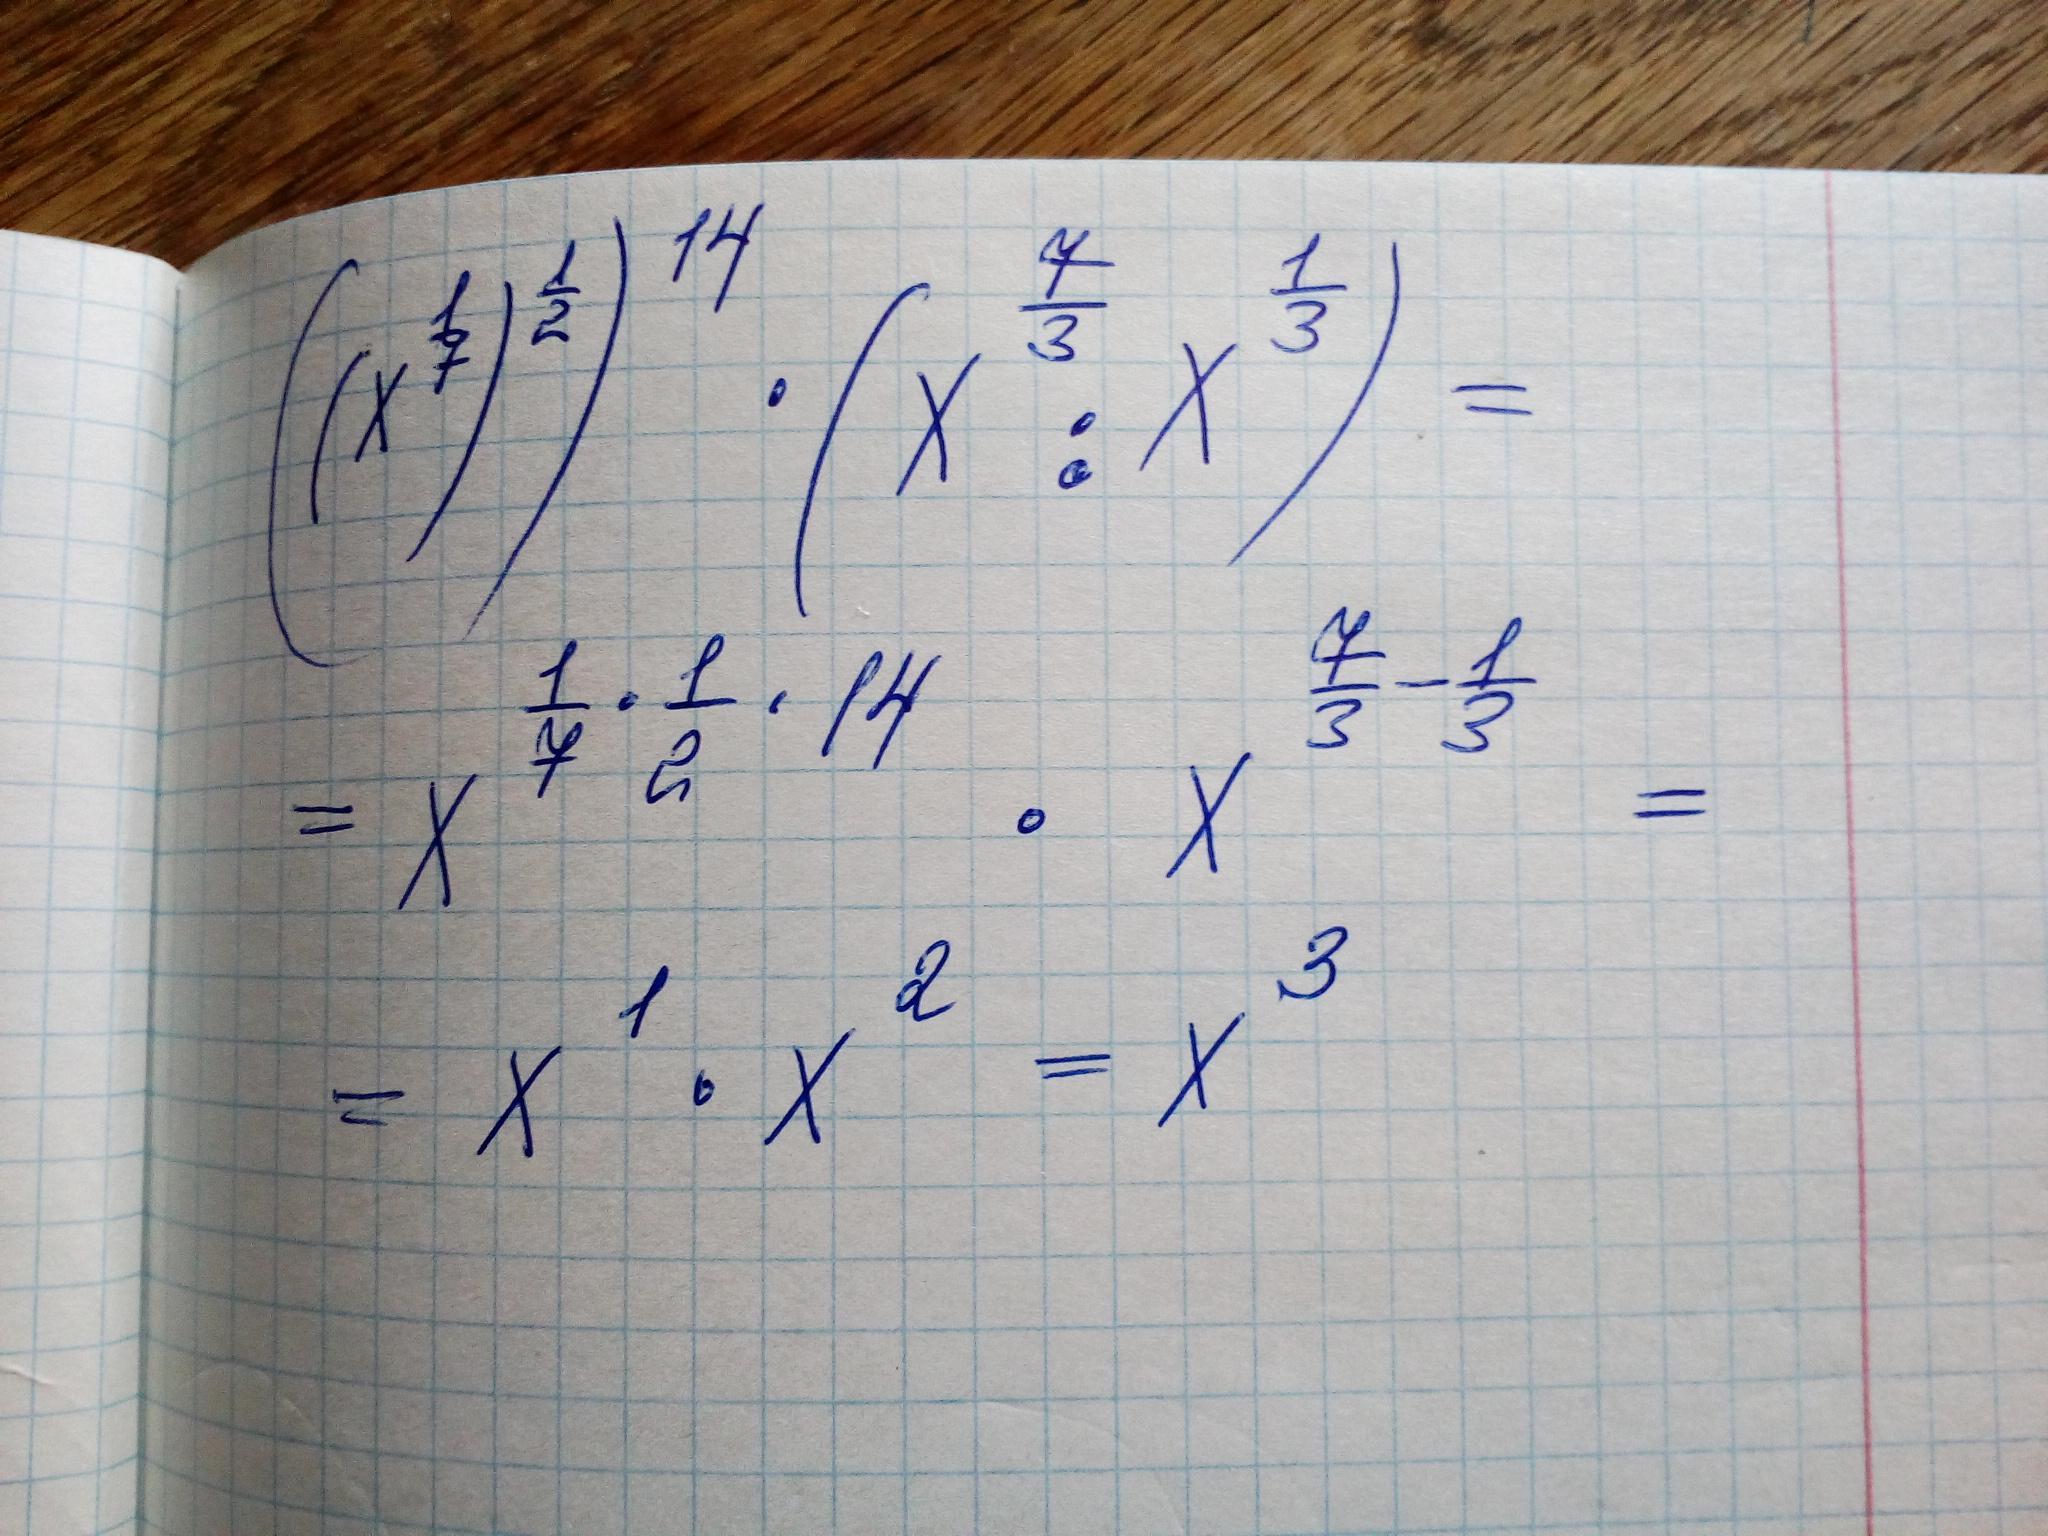 ((x^{\frac{1}{7}})^{\frac{1}{2}})^{14} · (x^{\frac{7}{3}} : x^{\frac{1}{3}}) =
= x^{\frac{1}{7} · \frac{1}{2} · 14} · x^{\frac{7}{3} - \frac{1}{3}} =
= x^{1} · x^{2} = x^{3}